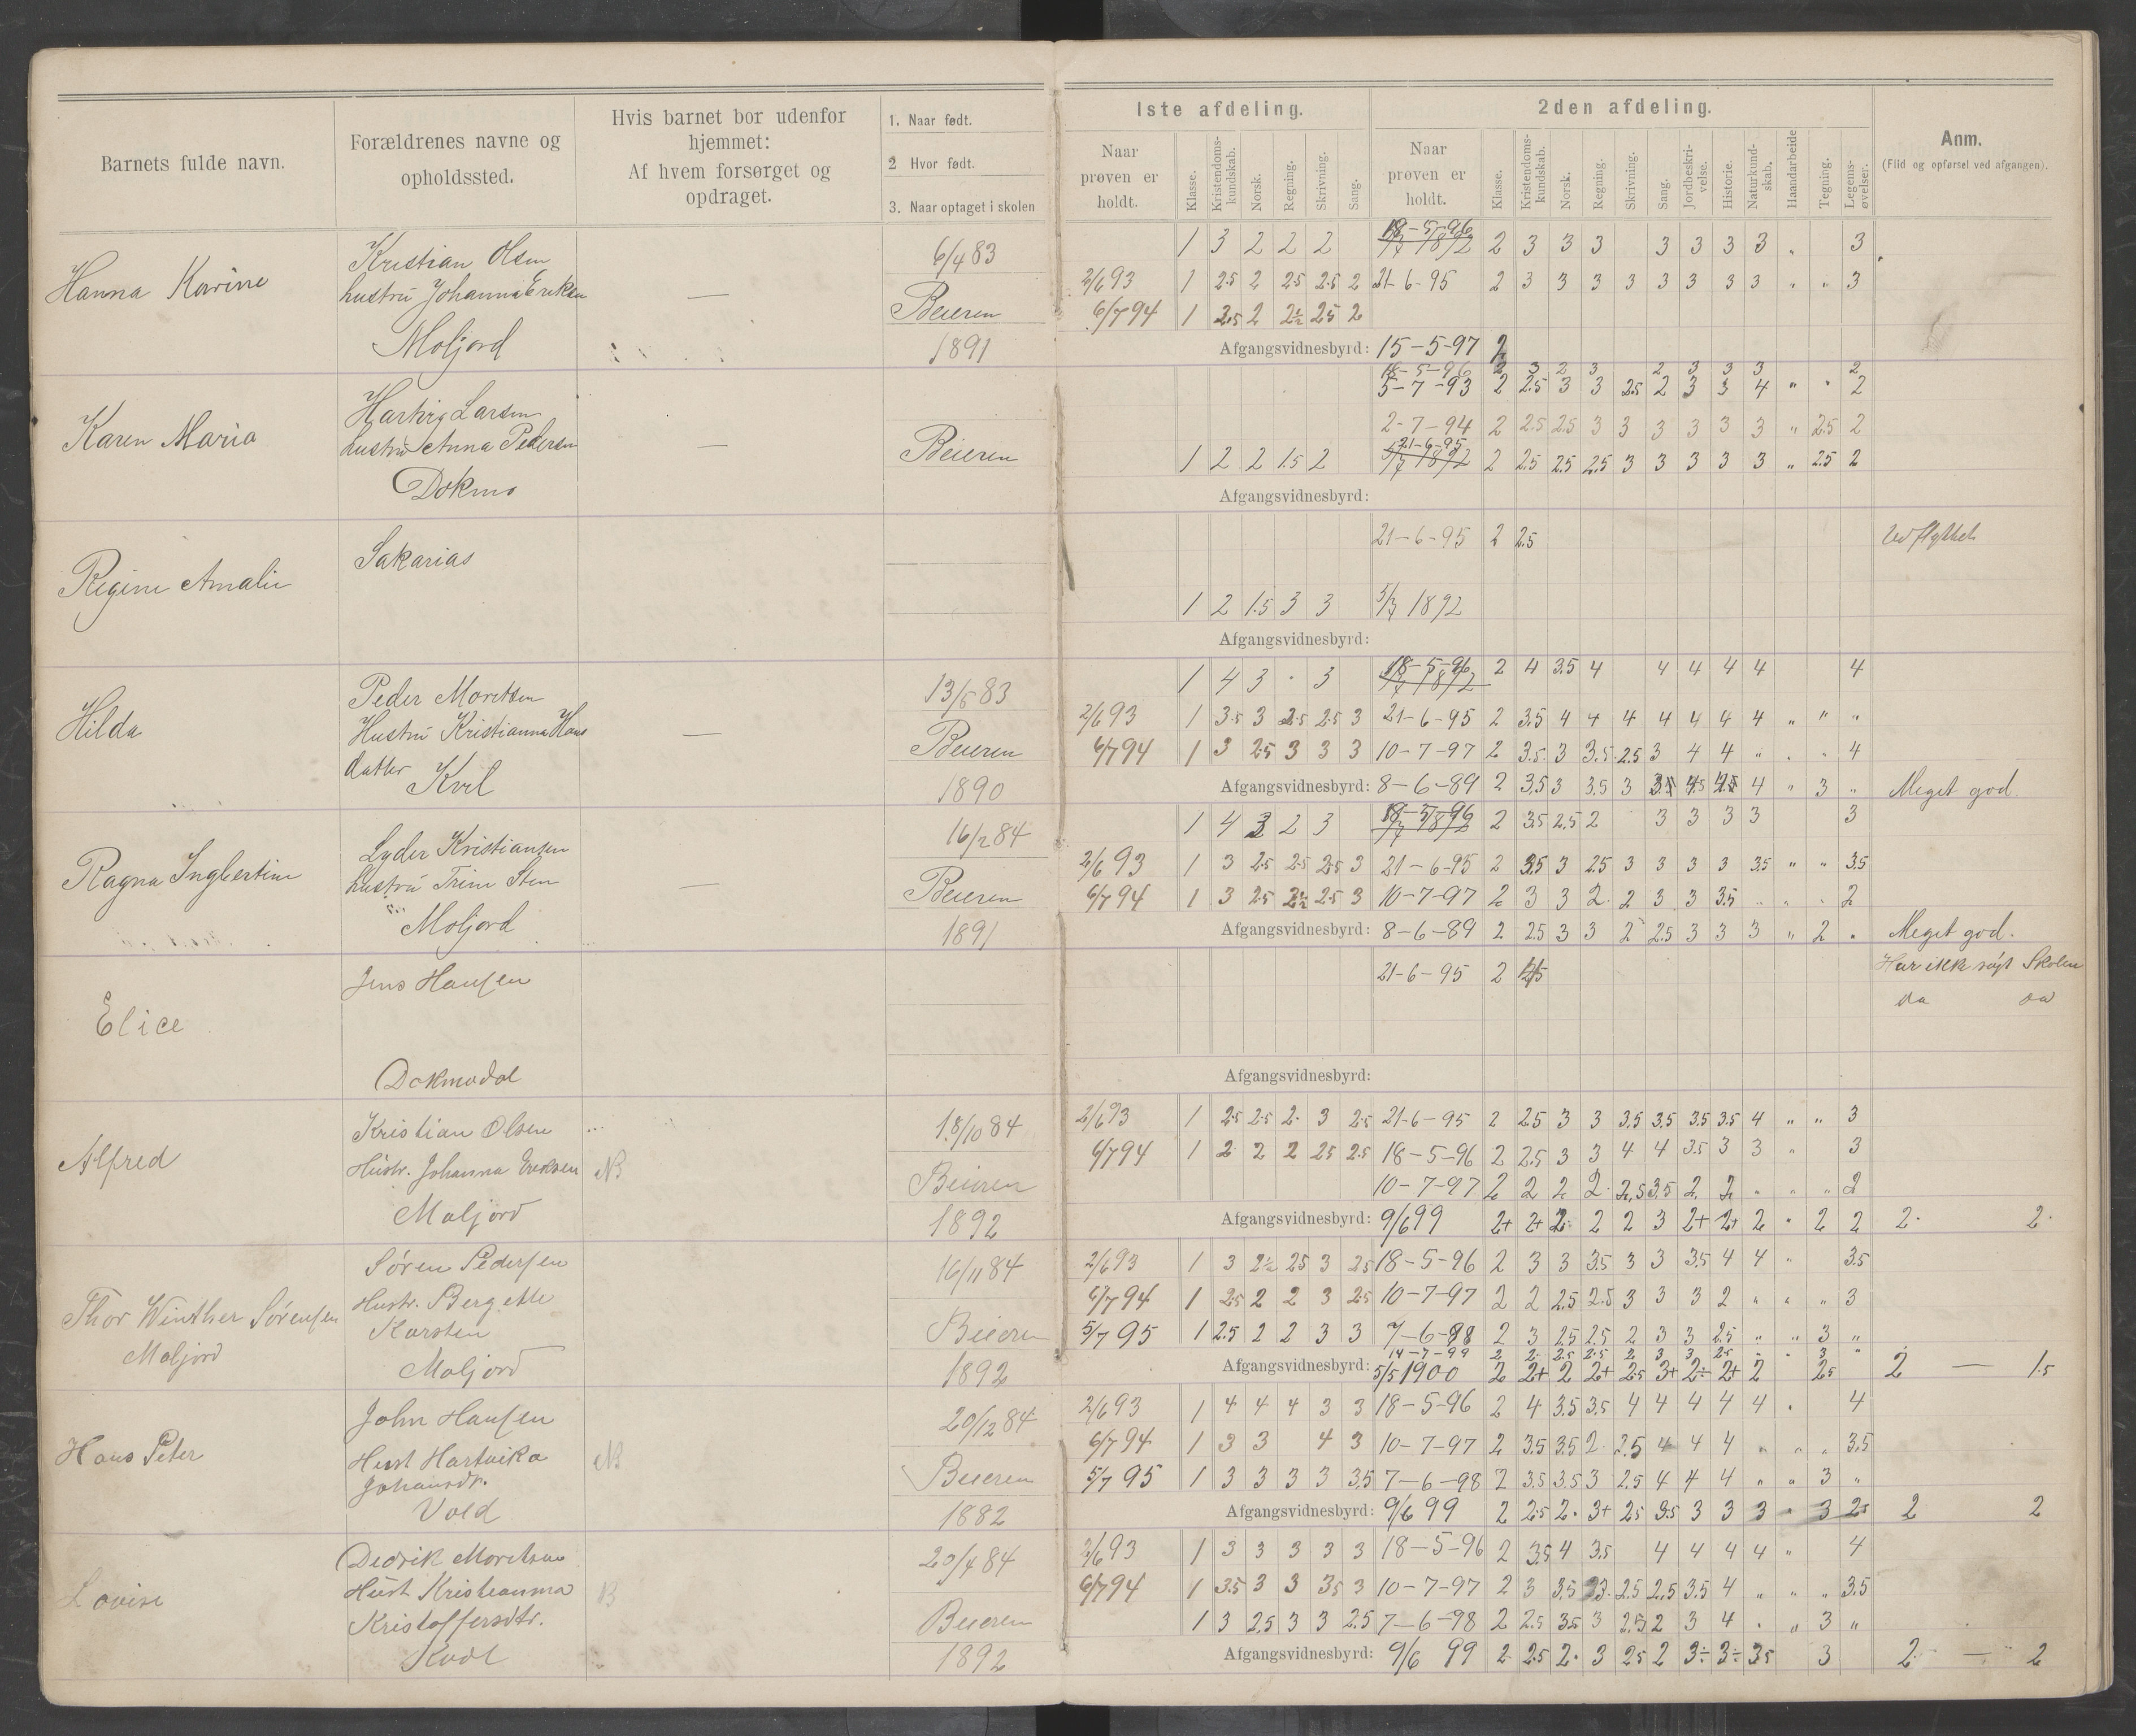 Barnets fulde navn.
Forældrenes navne og opholdssted.
Hvis barnet bor udenfor hjemmet:
Af hvem forsørget og opdraget.
1. Naar født.
2 Hvor født.
3. Naar optaget i skolen
1ste afdeling.
Naar prøven er holdt.
Klasse.
Kristendomskundskab.
Norsk.
Regning.
Skrivning.
Sang.
2den afdeling.
Naar prøven er holdt.
Klasse.
Kristendomskundskab.
Norsk.
Regning.
Skrivning.
Sang.
Jordbeskrivelse.
Historie.
Naturkundskab.
Haandarbeide
Tegning.
Legemsøvelser.
Anm.
(Flid og opførsel ved afgangen).
Hanna Korine
Kristian Olsen
hustrú Johanna Eriksen
Moljord
—
6/4 83
Beieren
1891
1 3 2 2 2
18-5-96 2 3 3 3 3 3 3 3 „ 3
2/6 93 1 2.5 2 2.5 2.5 2 21-6-95 2 3 3 3 3 3 3 3 3 „ „ 3
6/7 94 1 2.5 2 2½ 2.5 2
Afgangsvidnesbyrd: 15-5-97 2
Karen Maria
Hartvig Larsen
hustrú Anna Pedersen
Dokmo
—
Beieren
18-5-96 2 3 2 3 2 3 3 3 2
5-7-93 2 2.5 3 3 2.5 2 3 3 4 „ „ 2
2-7-94 2 2.5 2.5 3 3 3 3 3 3 „ 2.5 2
1 2 2 1.5 2 21-6-95 2 2.5 2.5 2.5 3 3 3 3 3 „ 2.5 2
Afgangsvidnesbyrd:
Regine Amalie
Sakarias
21-6-95 2 2.5
Udflyttet
1 2 1.5 3 3 5/7 1892
Afgangsvidnesbyrd:
Hilda
Peder Moritsen
Hustrú Kristianna Hans
datter Kvel
—
13/5 83
Beieren
1890
1 4 3 · 3 18-5-96 2 4 3.5 4 4 4 4 4 4
2/6 93 1 3.5 3 2.5 2.5 3 21-6-95 2 3.5 4 4 4 4 4 4 4 „ „ „
6/7 94 1 3 2.5 3 3 3 10-7-97 2 3.5 3 3.5 2.5 3 4 4 „ „ „ 4
Afgangsvidnesbyrd: 8-6-89 2 3.5 3 3.5 3 3.5 4.5 4.5 4 „ 3 „ Meget god.
Ragna Ingbertine
Lyder Kristiansen
hustrú Trine Sten
Moljord
—
16/2 84
Beieren
1891
1 4 3 2 3 18-5-96 2 3.5 2.5 2 3 3 3 3 3
2/6 93 1 3 2.5 2.5 2.5 3 21-6-95 2 3.5 3 2.5 3 3 3 3 3.5 „ „ 3.5
6/7 94 1 3 2.5 2½ 2.5 3 10-7-97 2 3 3 2 2 3 3 3.5 „ „ „ 2
Afgangsvidnesbyrd: 8-6-89 2 2.5 3 3 2 2.5 3 3 3 „ 2 „ Meget god.
Elice
Jens Hansen
Dokmodal
21-6-95 2
Har ikk søgt Skolen
Afgangsvidnesbyrd:
Alfred
Kristian Olsen
Hústr. Johanna Eriksen
Moljord
18/10 84
Beieren
1892
2/6 93 1 2.5 2.5 2 3 2.5 21-6-95 2 2.5 3 3 3.5 3.5 3.5 3.5 4 „ „ 3
6/7 94 1 2 2 2 2.5 2.5 18-5-96 2 2.5 3 3 4 4 3.5 3 3 „ 3
10-7-97 2 2 2 2 2.5 3.5 2 2 „ „ „ 2
Afgangsvidnesbyrd: 9/6 99 2+ 2+ 2 2 2 3 2+ 2+ 2 „ 2 2 2 2
Thor Winther Sørensen
Moljord
Søren Pedersen
Hustr. Bergette
Karsten
Moljord
16/11 84
Beieren
1892
2/6 93 1 3 2½ 2.5 3 2.5 18-5-96 2 3 3 3.5 3 3 3.5 4 4 „ 3.5
6/7 94 1 2.5 2 2 3 2.5 10-7-97 2 2 2.5 2.5 3 3 3 2 „ „ „ 3
5/7 95 1 2.5 2 2 3 3 7-6-98 2 3 2.5 2.5 2 3 3 2.5 „ „ 3 „
14-7-99 2 2 2.5 2.5 2 3 3 2.5 „ 3 „
Afgangsvidnesbyrd: 5/5 1900 2 2+ 2 2+ 2.5 3+ 2÷ 2+ 2 2.5 2 — 1.5
Hans Peter
John Hansen
Hust Hartvika
Johansdr.
Vold
20/12 84
Beieren
1882
2/6 93 1 4 4 4 3 3 18-5-96 2 4 3.5 3.5 4 4 4 4 4 „ 4
6/7 94 1 3 3 4 3 10-7-97 2 3.5 3.5 2 2.5 4 4 4 „ „ „ 3.5
5/7 95 1 3 3 3 3 3.5 7-6-98 2 3.5 3.5 3 2.5 4 4 4 „ „ 3 „
Afgangsvidnesbyrd: 9/6 99 2 2.5 2 3+ 2.5 3.5 3 3 3 „ 3 2.5 2 2
Lovise
Dedrik Moritsen
Húst Kristianna
Kristoffersdtr.
20/4 84
Beieren
1892
2/6 93 1 3 3 3 3 3 18-5-96 2 3.5 4 3.5 4 4 4 4 „ 4
6/7 94 1 3.5 3 3 3.5 3 10-7-97 2 3 3.5 3 2.5 2.5 3.5 4 „ „ „ 3.5
1 3 2.5 3 3 2.5 7-6-98 2 2.5 3.5 3 2.5 2 3 4 „ „ 3 „
Afgangsvidnesbyrd: 9/6 99 2 2.5 2 3 2.5 2 3÷ 3÷ 3.5 3 2 — 2